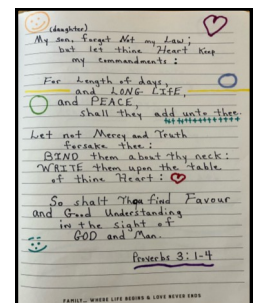 (daughter)
My son, forget Not my Law;
but let thine Heart Keep
my commandments:
For Length of days,
and LONG LIFE,
and PEACE,
shall they add unto thee.
Let not Mercy and Truth
forsake thee:
BIND them about thy neck:
WRITE them upon the table
of thine Heart:
So shalt Thou find Favour
and Good Understanding
in the sight of
GOD and Man.
Proverbs 3:1-4
FAMILY... WHERE LIFE BEGINS & LOVE NEVER ENDS